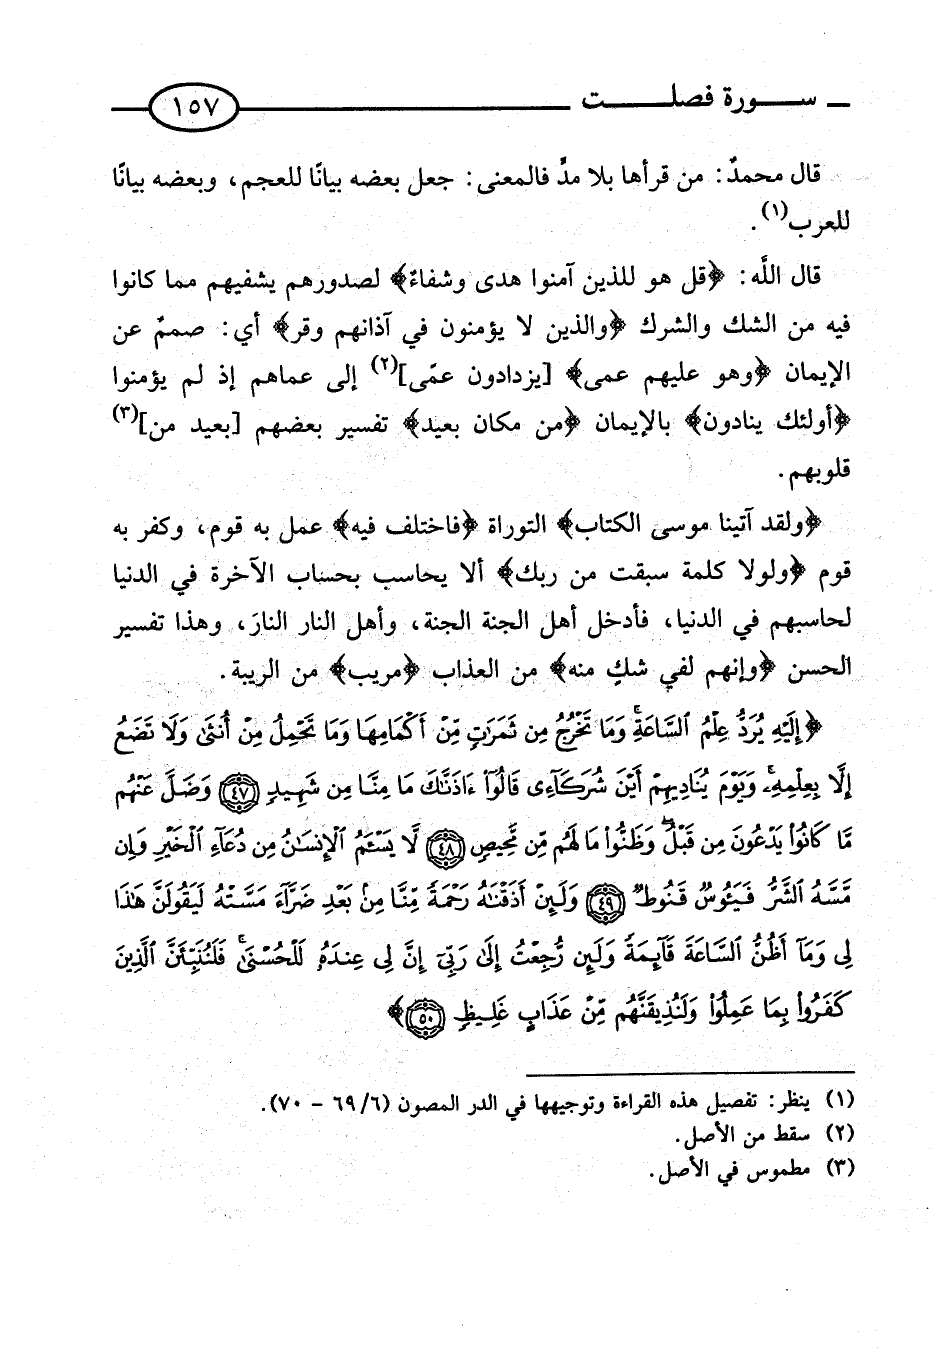 سورة فصلت ١٥٧
قال محمدٌ: من قرأها بلا مدٍّ فالمعنى: جعل بعضه بيانًا للعجم، وبعضه بيانًا
للعرب(١).
قال اللَّه: ﴿قل هو للذين آمنوا هدى وشفاءٌ﴾ لصدورهم يشفيهم مما كانوا
فيه من الشك والشرك ﴿والذين لا يؤمنون في آذانهم وقر﴾ أي: صممٌ عن
الإيمان ﴿وهو عليهم عمى﴾ [يزدادون عمًى](٢) إلى عماهم إذ لم يؤمنوا
﴿أولئك ينادون﴾ بالإيمان ﴿من مكان بعيد﴾ تفسير بعضهم [بعيد من](٣)
قلوبهم.
﴿ولقد آتينا موسى الكتاب﴾ التوراة ﴿فاختلف فيه﴾ عمل به قوم، وكفر به
قوم ﴿ولولا كلمة سبقت من ربك﴾ ألا يحاسب بحساب الآخرة في الدنيا
لحاسبهم في الدنيا، فأدخل أهل الجنة الجنة، وأهل النار النارَ، وهذا تفسير
الحسن ﴿وإنهم لفي شكٍ منه﴾ من العذاب ﴿مريب﴾ من الريبة.
﴿إِلَيْهِ يُرَدُّ عِلْمُ ٱلسَّاعَةِۚ وَمَا تَخْرُجُ مِن ثَمَرَٰتٍ مِّنْ أَكْمَامِهَا وَمَا تَحْمِلُ مِنْ أُنثَىٰ وَلَا تَضَعُ
إِلَّا بِعِلْمِهِۦۚ وَيَوْمَ يُنَادِيهِمْ أَيْنَ شُرَكَآءِى قَالُوٓا۟ ءَاذَنَّٰكَ مَا مِنَّا مِن شَهِيدٍ ٤٧ وَضَلَّ عَنْهُم
مَّا كَانُوا۟ يَدْعُونَ مِن قَبْلُۖ وَظَنُّوا۟ مَا لَهُم مِّن مَّحِيصٍ ٤٨ لَّا يَسْـَٔمُ ٱلْإِنسَٰنُ مِن دُعَآءِ ٱلْخَيْرِ وَإِن
مَّسَّهُ ٱلشَّرُّ فَيَـُٔوسٌ قَنُوطٌ ٤٩ وَلَئِنْ أَذَقْنَٰهُ رَحْمَةً مِّنَّا مِنۢ بَعْدِ ضَرَّآءَ مَسَّتْهُ لَيَقُولَنَّ هَٰذَا
لِى وَمَآ أَظُنُّ ٱلسَّاعَةَ قَآئِمَةً وَلَئِن رُّجِعْتُ إِلَىٰ رَبِّىٓ إِنَّ لِى عِندَهُۥ لَلْحُسْنَىٰۚ فَلَنُنَبِّئَنَّ ٱلَّذِينَ
كَفَرُوا۟ بِمَا عَمِلُوا۟ وَلَنُذِيقَنَّهُم مِّنْ عَذَابٍ غَلِيظٍ ٥٠﴾
(١) ينظر: تفصيل هذه القراءة وتوجيهها في الدر المصون (٦/ ٦٩ - ٧٠).
(٢) سقط من الأصل.
(٣) مطموس في الأصل.